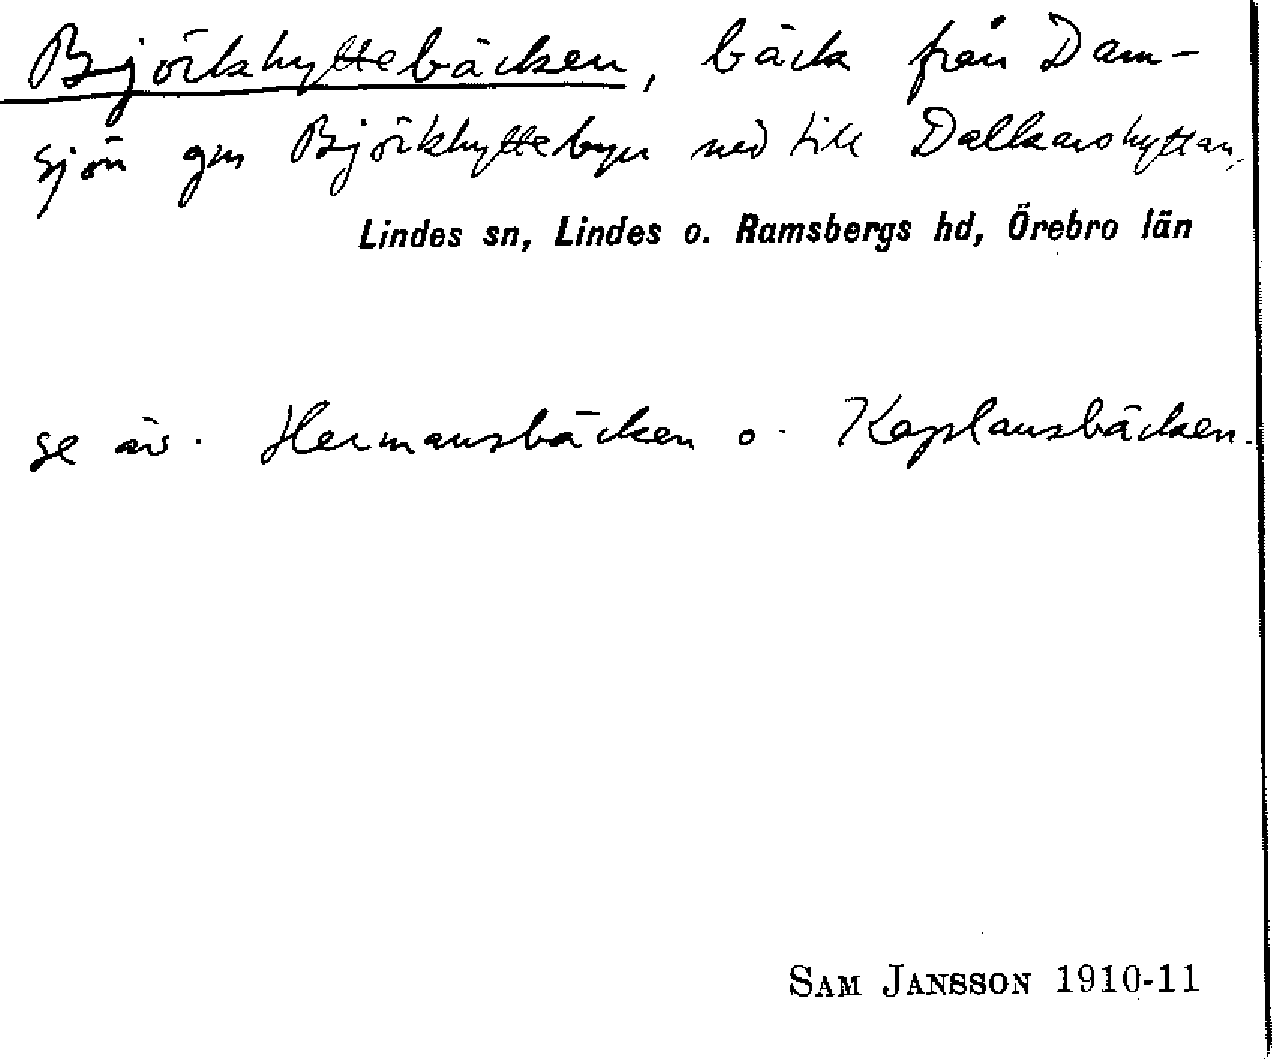 Björkhyttebäcken, bäck från Dam-
sjön gm Björkhyttebyn ned till Dalkarshyttan,
Lindes sn, Lindes o. Ramsbergs hd, Örebro län
se äv. Hermansbäcken o. Kaplansbäcken.
SAM JANSSON 1910-11